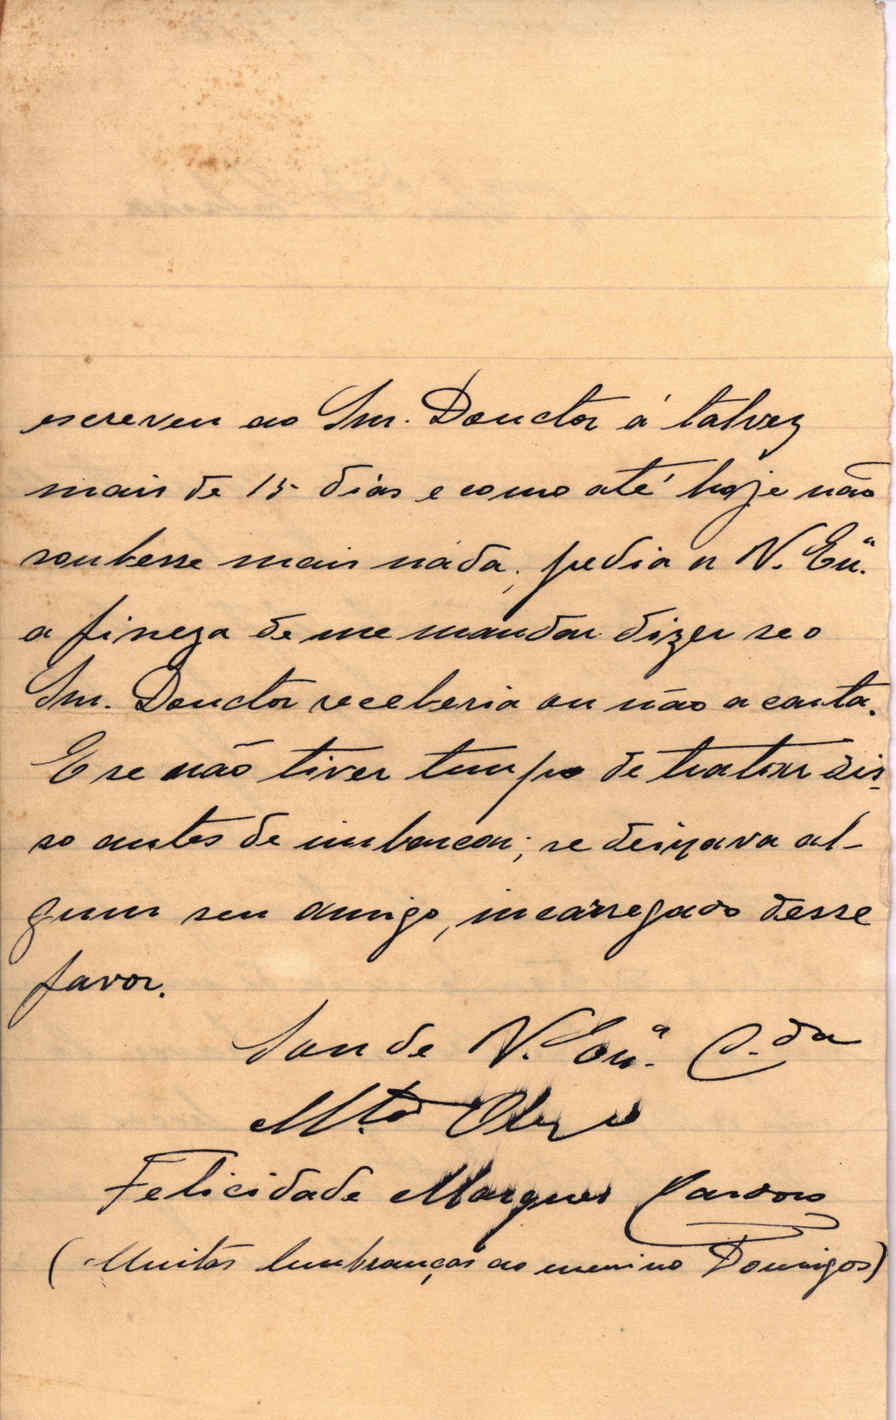 escreveu ao Snr. Douctor á talvez
mais de 15 dias e como até hoje não
soubesse mais náda, pedia a V. Eu.ª
a fineza de me mandar dizer se o
Snr. Douctor receberia ou não a carta.
E se não tiver tempo de tratar dis-
so antes de imbarcar; se deixava al-
gum seu amigo, incarregado desse
favor.
Sou de V. Eu.ª C.da
M.to Obrg.
Felicidade Marques Cardoso
(Muitas lembranças ao menino Domigos)